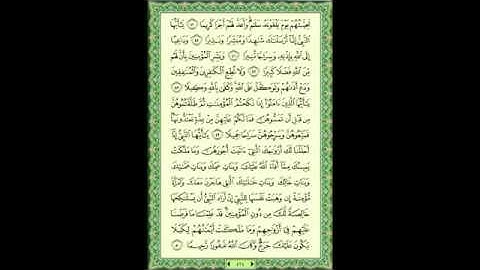 تَحِيَّتُهُمْ يَوْمَ يَلْقَوْنَهُ سَلَٰمٌ وَأَعَدَّ لَهُمْ أَجْرًا كَرِيمًا ٤٤ يَٰٓأَيُّهَا
ٱلنَّبِىُّ إِنَّآ أَرْسَلْنَٰكَ شَٰهِدًا وَمُبَشِّرًا وَنَذِيرًا ٤٥ وَدَاعِيًا
إِلَى ٱللَّهِ بِإِذْنِهِۦ وَسِرَاجًا مُّنِيرًا ٤٦ وَبَشِّرِ ٱلْمُؤْمِنِينَ بِأَنَّ لَهُم
مِّنَ ٱللَّهِ فَضْلًا كَبِيرًا ٤٧ وَلَا تُطِعِ ٱلْكَٰفِرِينَ وَٱلْمُنَٰفِقِينَ
وَدَعْ أَذَىٰهُمْ وَتَوَكَّلْ عَلَى ٱللَّهِ وَكَفَىٰ بِٱللَّهِ وَكِيلًا ٤٨
يَٰٓأَيُّهَا ٱلَّذِينَ ءَامَنُوٓا۟ إِذَا نَكَحْتُمُ ٱلْمُؤْمِنَٰتِ ثُمَّ طَلَّقْتُمُوهُنَّ
مِن قَبْلِ أَن تَمَسُّوهُنَّ فَمَا لَكُمْ عَلَيْهِنَّ مِنْ عِدَّةٍ تَعْتَدُّونَهَا
فَمَتِّعُوهُنَّ وَسَرِّحُوهُنَّ سَرَاحًا جَمِيلًا ٤٩ يَٰٓأَيُّهَا ٱلنَّبِىُّ إِنَّآ
أَحْلَلْنَا لَكَ أَزْوَٰجَكَ ٱلَّٰتِىٓ ءَاتَيْتَ أُجُورَهُنَّ وَمَا مَلَكَتْ
يَمِينُكَ مِمَّآ أَفَآءَ ٱللَّهُ عَلَيْكَ وَبَنَاتِ عَمِّكَ وَبَنَاتِ عَمَّٰتِكَ
وَبَنَاتِ خَالِكَ وَبَنَاتِ خَٰلَٰتِكَ ٱلَّٰتِى هَاجَرْنَ مَعَكَ وَٱمْرَأَةً
مُّؤْمِنَةً إِن وَهَبَتْ نَفْسَهَا لِلنَّبِىِّ إِنْ أَرَادَ ٱلنَّبِىُّ أَن يَسْتَنكِحَهَا
خَالِصَةً لَّكَ مِن دُونِ ٱلْمُؤْمِنِينَ قَدْ عَلِمْنَا مَا فَرَضْنَا
عَلَيْهِمْ فِىٓ أَزْوَٰجِهِمْ وَمَا مَلَكَتْ أَيْمَٰنُهُمْ لِكَيْلَا
يَكُونَ عَلَيْكَ حَرَجٌ وَكَانَ ٱللَّهُ غَفُورًا رَّحِيمًا ٥٠